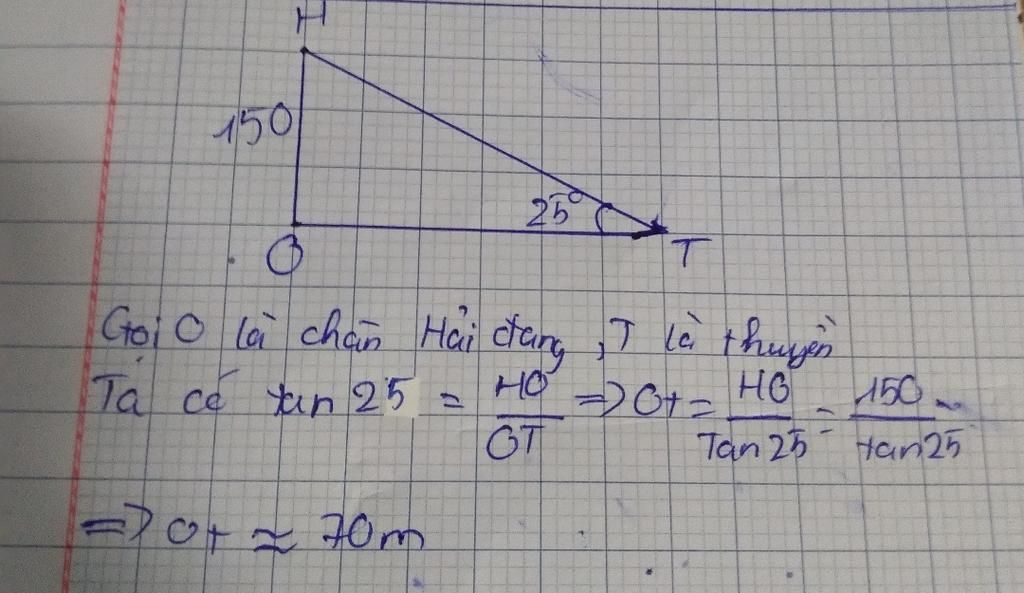 H
150
25°
O
T
Gọi O là chân Hải đăng, T là thuyền
Ta có tan 25 = HO/OT => OT = HO/Tan 25 = 150/tan 25
=> OT ≈ 70m